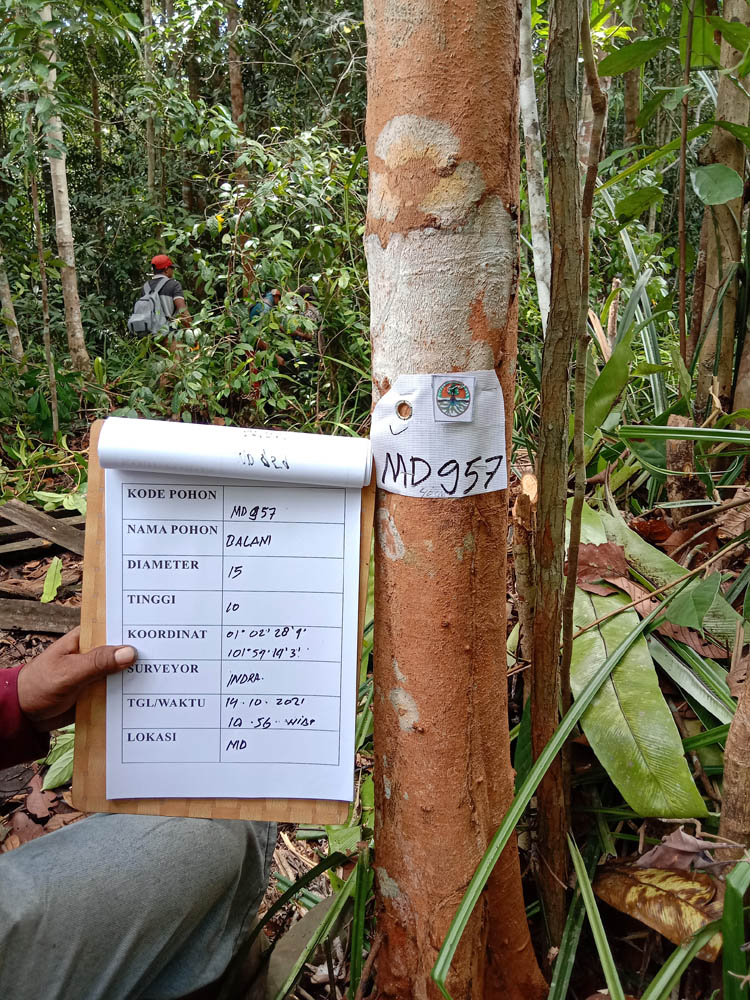 MD957
KODE POHON MD957
NAMA POHON BALAM
DIAMETER 15
TINGGI 10
KOORDINAT 01° 02' 28' 9"
101° 59' 19' 3"
SURVEYOR INDRA.
TGL/WAKTU 14.10.2021
10.56. WIB
LOKASI MD